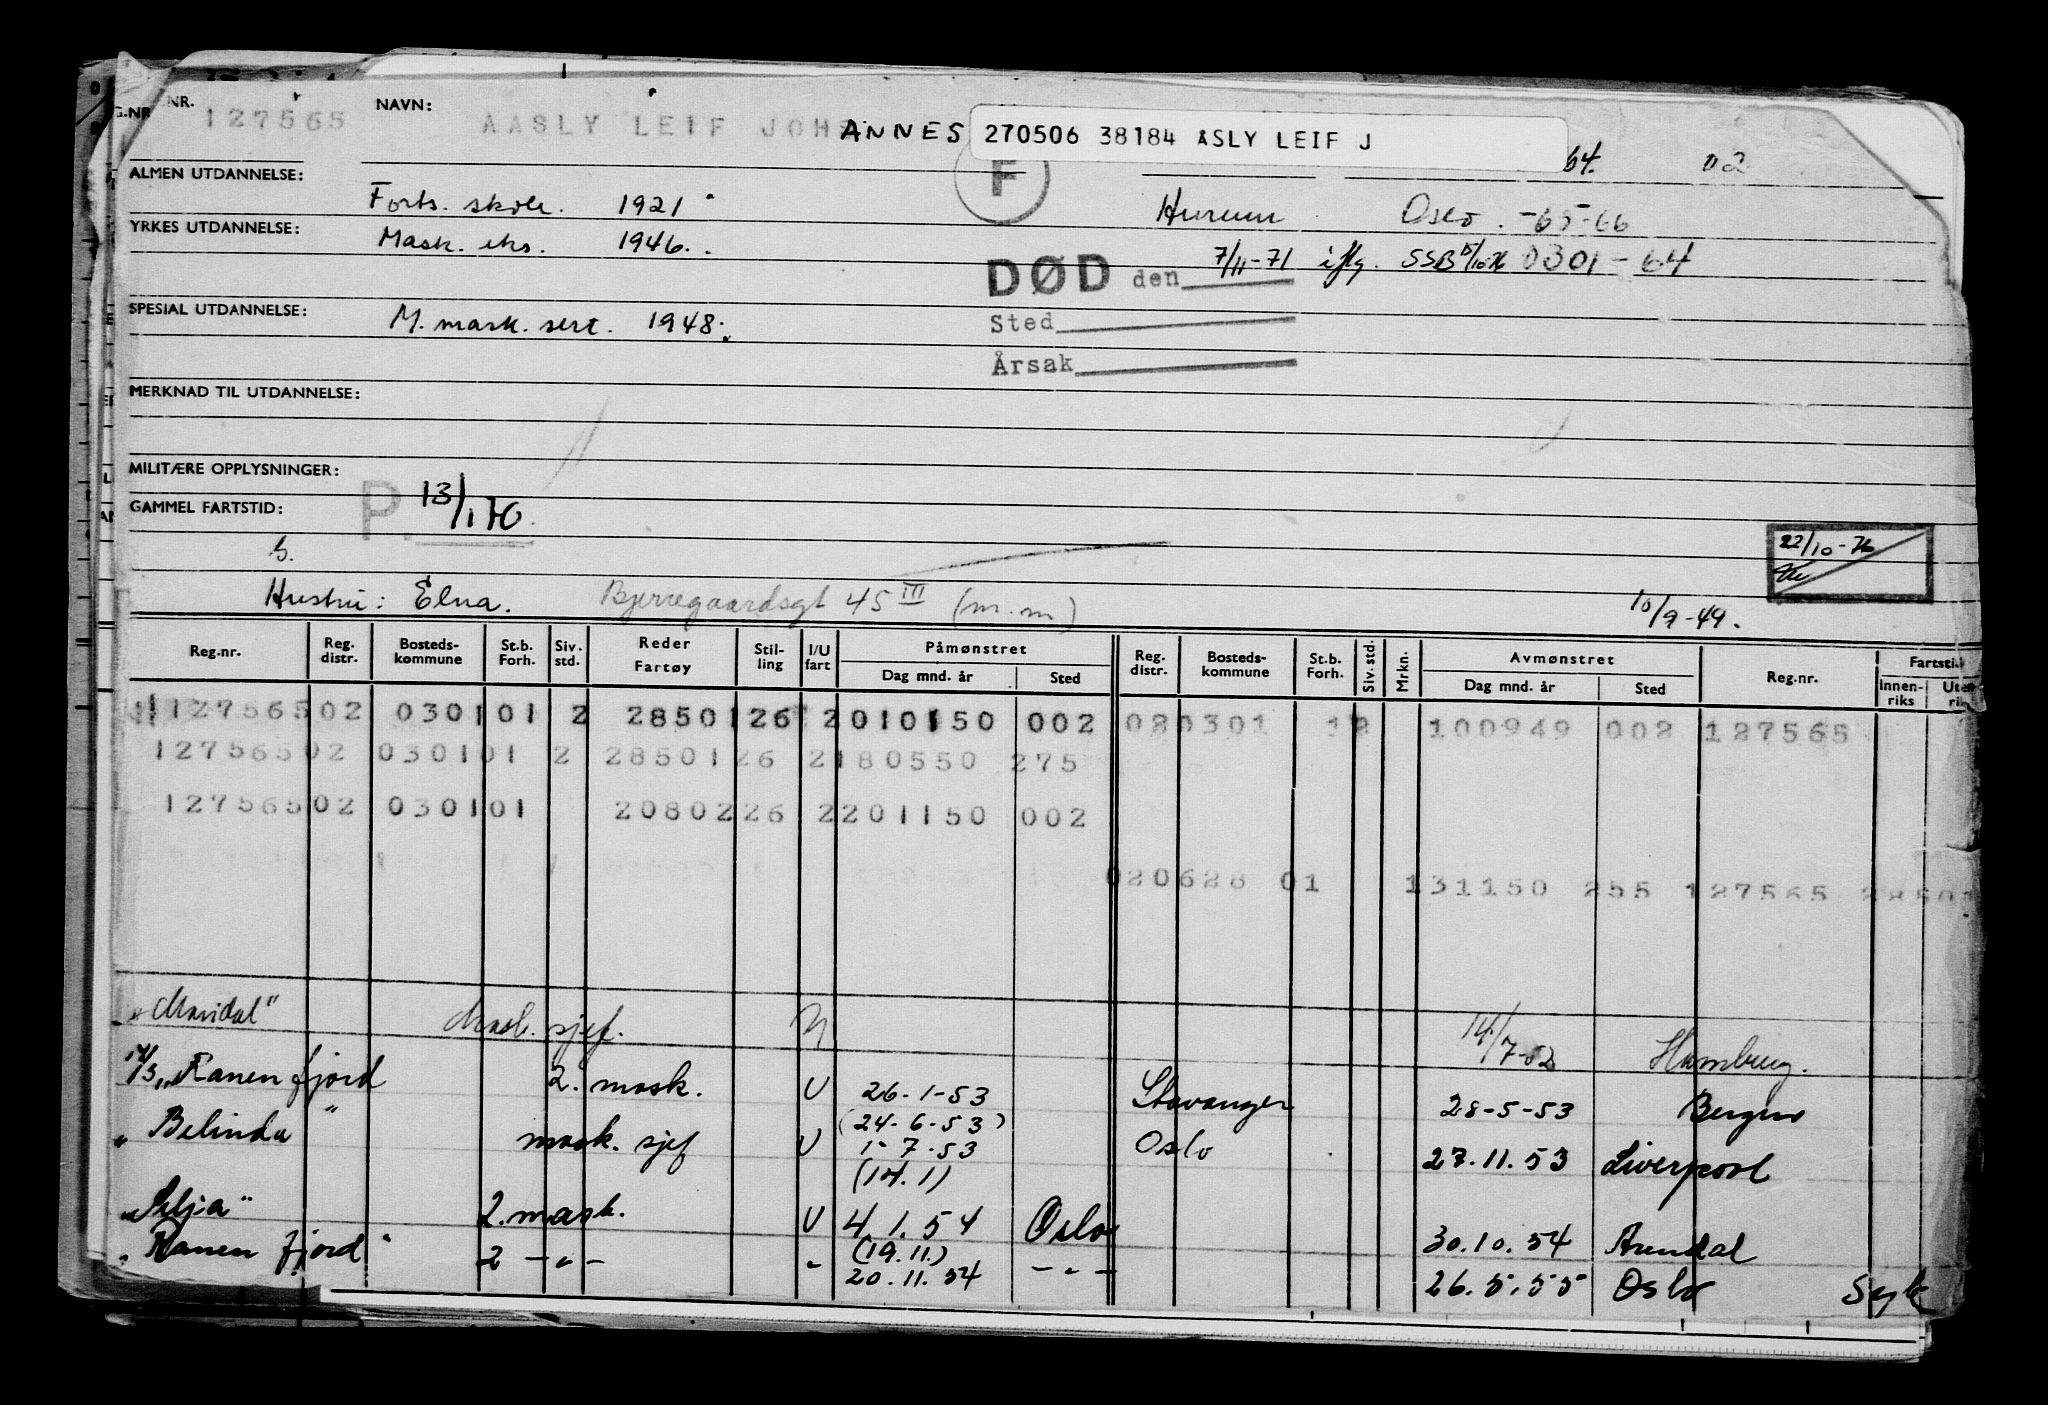 G.NR NR. 127565 NAVN: AASLY LEIF JOHANNES 270506 38184 ASLY LEIF J
64. 02
ALMEN UTDANNELSE: F
Forts. skole. 1921 Hurum Oslo. -65-66
YRKES UTDANNELSE: Mask. eks. 1946.
DØD den 7/11-71 iflg. SSB 15/10-76 0301-64
SPESIAL UTDANNELSE: M. mask. sert. 1948. Sted
Årsak
MERKNAD TIL UTDANNELSE:
MILITÆRE OPPLYSNINGER:
P. 13/1 70
GAMMEL FARTSTID:
22/10-76
G.
Hustru: Elna. Bjerregaardsgt 45 III (m.m) 10/9-49.
Reg.nr. Reg. distr. Bosteds-kommune St.b. Forh. Siv. std. Reder Fartøy Stil-ling I/U fart Påmønstret Dag mnd. år Sted Reg. distr. Bosteds-kommune St.b. Forh. Siv.std. Mrkn. Avmønstret Dag mnd. år Sted Reg.nr. Fartsti Innen-riks Uten ri
127565 02 0301 01 2 2850126 2 010150 002 020301 12 100949 002 127565
127565 02 0301 01 2 2850126 2 180550 275
127565 02 0301 01 2080226 2 201150 002
020628 01 131150 255 127565 28501
"Maridal" Mask. sjef. 14/7-52 Hamburg.
"Ranenfjord" 2. mask. U 26-1-53 Stavanger 28-5-53 Bergen
(24-6-53)
" Belinda mask. sjef U 1-7-53 Oslo 27.11.53 Liverpool
(14.1)
"Selja" 2. mask. U 4.1.54 Oslo 30.10.54 Arendal
(19.11.)
"Ranenfjord" 2 -"- " 20.11.54 -"- 26.5.55 Oslo Syk